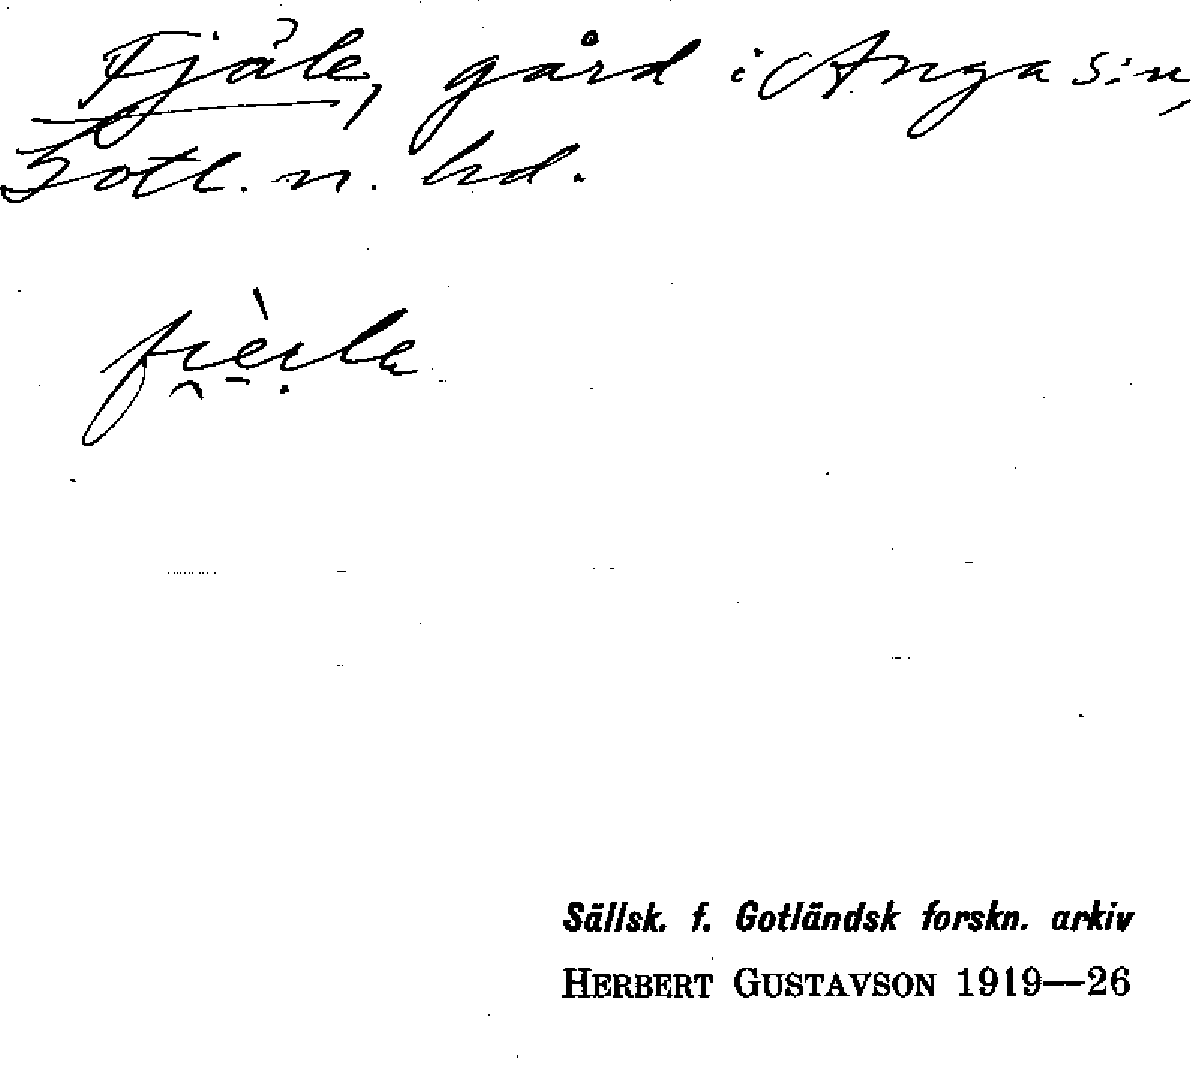 Fjäle, gård i Anga s:n,
Gotl. n. hd.
Sällsk. f. Gotländsk forskn. arkiv
HERBERT GUSTAVSON 1919—26